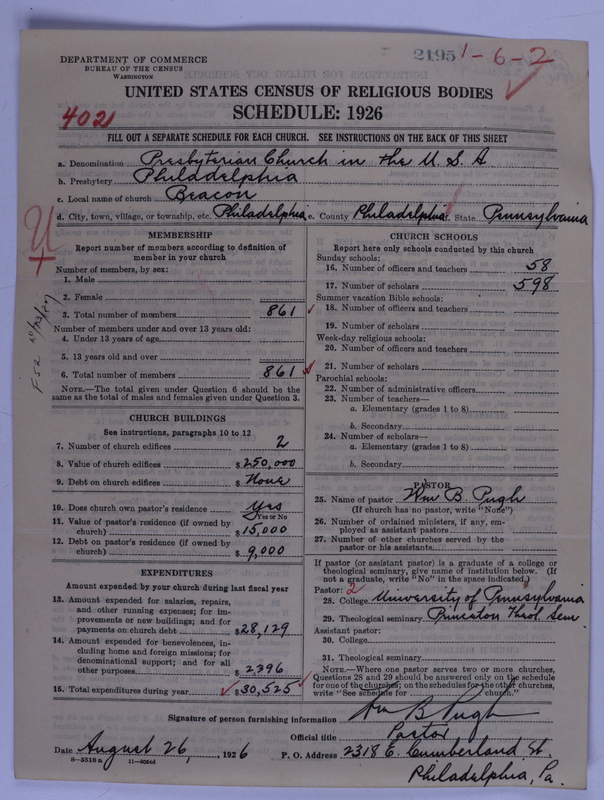 2195 1-6-2
DEPARTMENT OF COMMERCE
BUREAU OF THE CENSUS
WASHINGTON
UNITED STATES CENSUS OF RELIGIOUS BODIES
402
SCHEDULE: 1926
FILL OUT A SEPARATE SCHEDULE FOR EACH CHURCH. SEE INSTRUCTIONS ON THE BACK OF THIS SHEET
a. Denomination Presbyterian Church in the U. S. A
b. Presbytery Philadelphia
c. Local name of church Beacon
d. City, town, village, or township, etc. Philadelphia e. County Philadelphia f. State Pennsylvania
U
MEMBERSHIP
Report number of members according to definition of
member in your church
Number of members, by sex:
1. Male
2. Female
3. Total number of members 861
Number of members under and over 13 years old:
4. Under 13 years of age
5. 13 years old and over
6. Total number of members 861
NOTE.—The total given under Question 6 should be the
same as the total of males and females given under Question 3.
CHURCH BUILDINGS
See instructions, paragraphs 10 to 12
7. Number of church edifices 2
8. Value of church edifices $250,000
9. Debt on church edifices $ None
10. Does church own pastor's residence Yes
Yes or No
11. Value of pastor's residence (if owned by
church) $15,000
12. Debt on pastor's residence (if owned by
church) $ 9,000
EXPENDITURES
Amount expended by your church during last fiscal year
13. Amount expended for salaries, repairs,
and other running expenses; for im-
provements or new buildings; and for
payments on church debt $28,129
14. Amount expended for benevolences, in-
cluding home and foreign missions; for
denominational support; and for all
other purposes $ 2396
15. Total expenditures during year $30,525
CHURCH SCHOOLS
Report here only schools conducted by this church
Sunday schools:
16. Number of officers and teachers 58
17. Number of scholars 598
Summer vacation Bible schools:
18. Number of officers and teachers
19. Number of scholars
Week-day religious schools:
20. Number of officers and teachers
21. Number of scholars
Parochial schools:
22. Number of administrative officers
23. Number of teachers—
a. Elementary (grades 1 to 8)
b. Secondary
24. Number of scholars—
a. Elementary (grades 1 to 8)
b. Secondary
PASTOR
25. Name of pastor Wm B. Pugh
(If church has no pastor, write "None")
26. Number of ordained ministers, if any, em-
ployed as assistant pastors
27. Number of other churches served by the
pastor or his assistants
If pastor (or assistant pastor) is a graduate of a college or
theological seminary, give name of institution below. (If
not a graduate, write "No" in the space indicated.)
Pastor: 2
28. College University of Pennsylvania
29. Theological seminary Princeton Theol. Sem
Assistant pastor:
30. College
31. Theological seminary
NOTE.—Where one pastor serves two or more churches,
Questions 28 and 29 should be answered only on the schedule
for one of the churches; on the schedules for the other churches,
write "See schedule for church."
Signature of person furnishing information Wm B Pugh
Official title Pastor
Date August 26, 1926 P. O. Address 2318 E. Cumberland St.
8-3518 a Philadelphia, Pa.